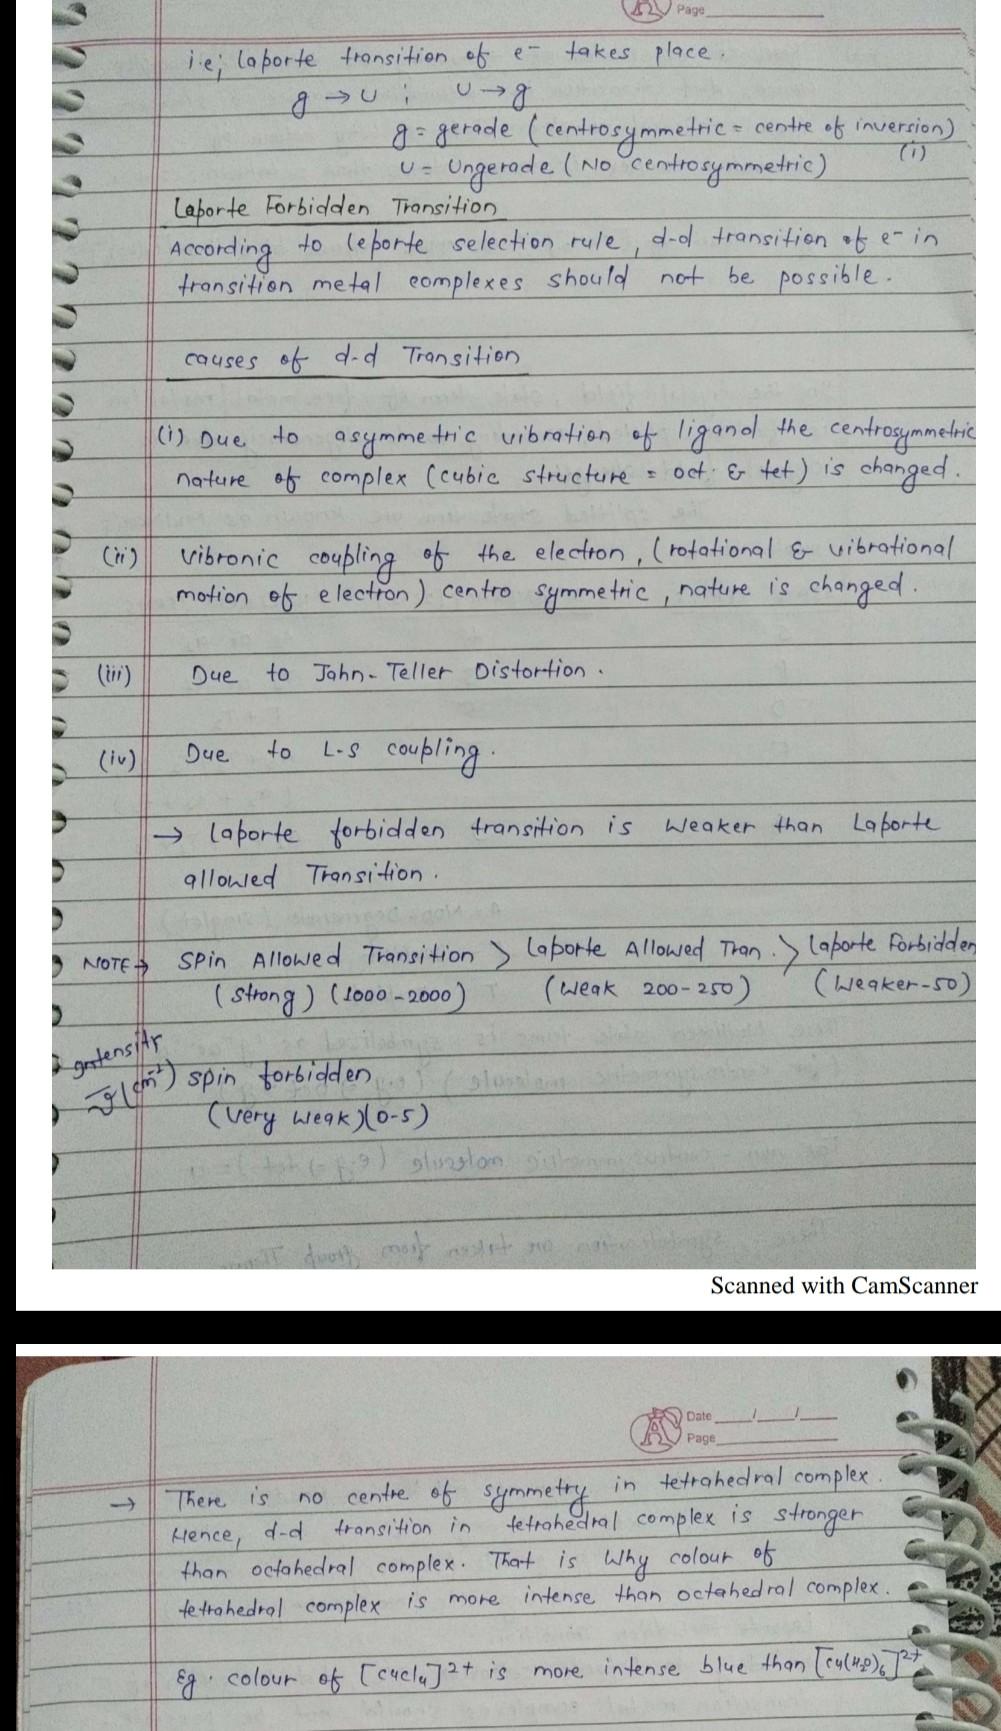 Page
i.e; laporte transition of e⁻ takes place.
g → u ; u → g
g = gerade (centrosymmetric = centre of inversion)
(i)
u = Ungerade (No centrosymmetric)
Laporte Forbidden Transition
According to leporte selection rule, d-d transition of e⁻ in
transition metal complexes should not be possible.
causes of d-d Transition
(i) Due to asymmetric vibration of ligand the centrosymmetric
nature of complex (cubic structure = oct. & tet) is changed.
(ii) vibronic coupling of the electron, (rotational & vibrational
motion of electron) centro symmetric, nature is changed.
(iii) Due to John-Teller Distortion.
(iv) Due to L-S coupling.
→ laporte forbidden transition is weaker than Laporte
allowed Transition.
NOTE → SPin Allowed Transition > laporte Allowed Tran. > laporte Forbidden
(strong) (1000-2000) (weak 200-250) (weaker-50)
intensity
(cm⁻¹) spin forbidden
(very weak)(0-5)
Scanned with CamScanner
Date
Page
→ There is no centre of symmetry in tetrahedral complex.
Hence, d-d transition in tetrahedral complex is stronger
than octahedral complex. That is why colour of
tetrahedral complex is more intense than octahedral complex.
Eg. colour of [CuCl₄]²⁺ is more intense blue than [Cu(H₂O)₆]²⁺